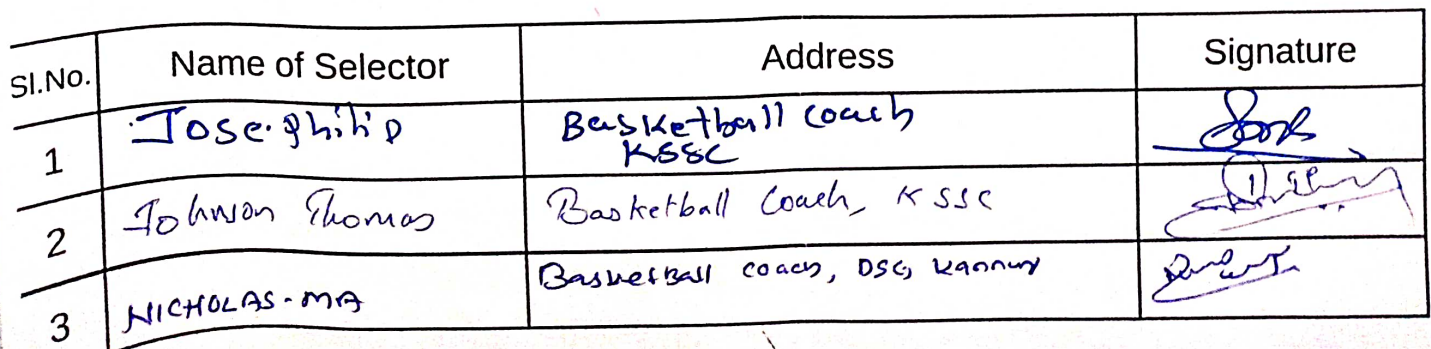 Sl.No. Name of Selector Address Signature
1 Jose Philip Basketball coach
KSSC
2 Johnson Thomas Basketball Coach, KSSC
3 NICHOLAS-MA Basketball coach, DSC, Kannur